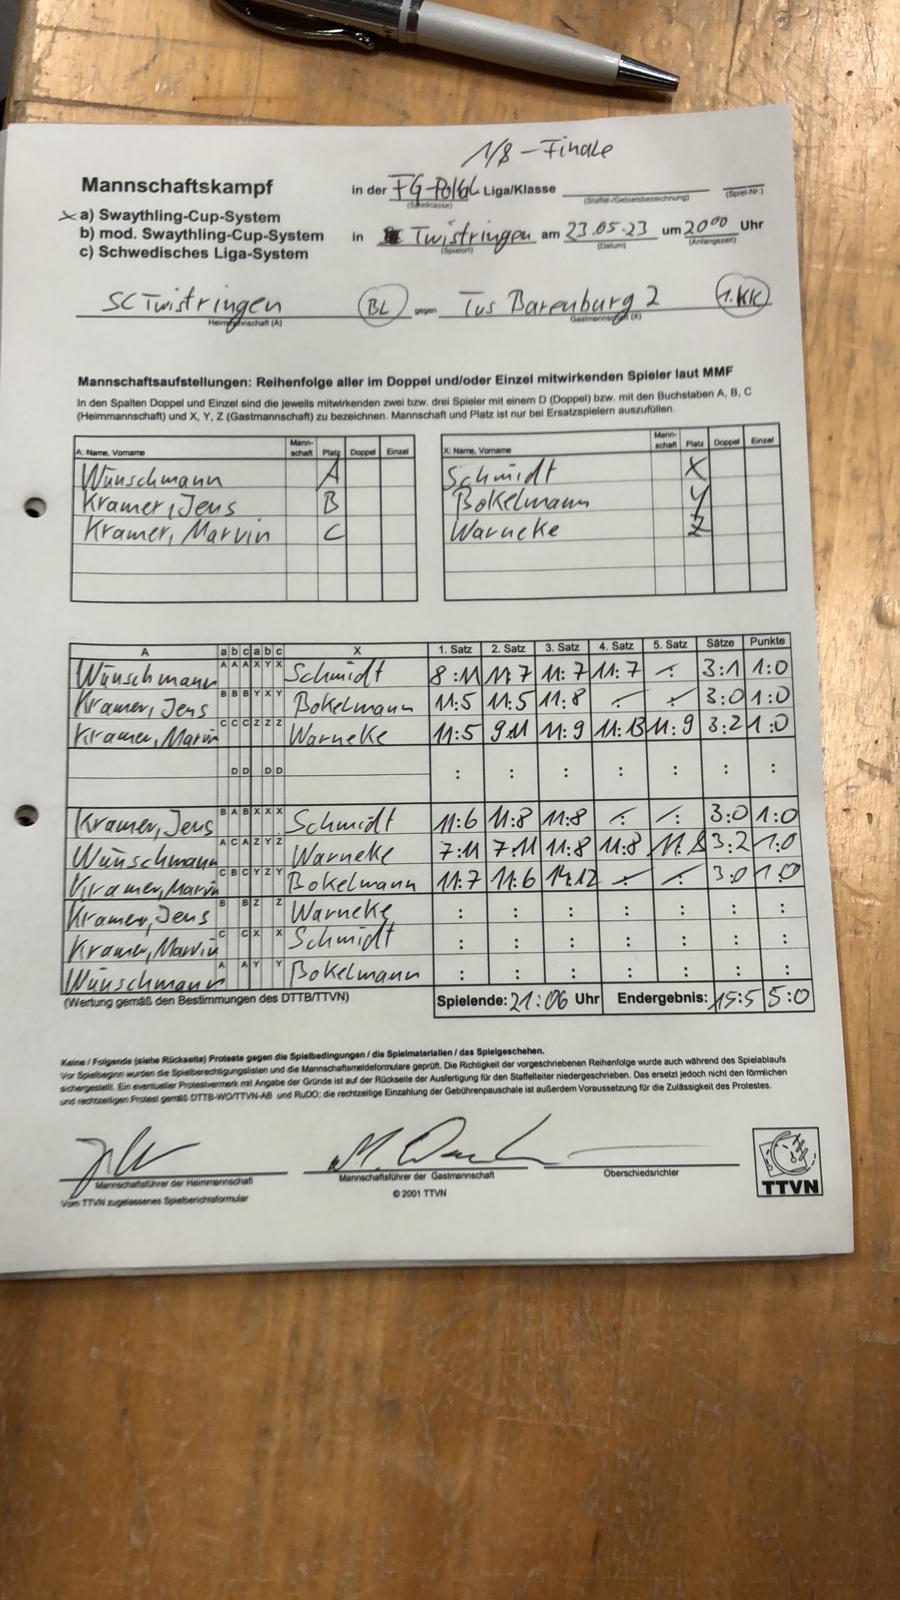 1/8 - Finale
Mannschaftskampf
in der FG-Pokal Liga/Klasse
(Spielklasse) (Staffel-/Gebietsbezeichnung) (Spiel-Nr.)
x a) Swaythling-Cup-System
b) mod. Swaythling-Cup-System
c) Schwedisches Liga-System
in Twistringen am 23.05.23 um 20⁰⁰ Uhr
(Spielort) (Datum) (Anfangszeit)
SC Twistringen BL gegen Tus Barenburg 2 1.KK
Heimmannschaft (A) Gastmannschaft (X)
Mannschaftsaufstellungen: Reihenfolge aller im Doppel und/oder Einzel mitwirkenden Spieler laut MMF
In den Spalten Doppel und Einzel sind die jeweils mitwirkenden zwei bzw. drei Spieler mit einem D (Doppel) bzw. mit den Buchstaben A, B, C
(Heimmannschaft) und X, Y, Z (Gastmannschaft) zu bezeichnen. Mannschaft und Platz ist nur bei Ersatzspielern auszufüllen.
A: Name, Vorname Mann-schaft Platz Doppel Einzel X: Name, Vorname Mann-schaft Platz Doppel Einzel
Wünschmann A Schmidt X
Kramer, Jens B Bokelmann Y
Kramer, Marvin C Warneke Z
A a b c a b c X 1. Satz 2. Satz 3. Satz 4. Satz 5. Satz Sätze Punkte
Wünschmann A A A X Y X Schmidt 8:11 11:7 11:7 11:7 -:- 3:1 1:0
Kramer, Jens B B B Y X Y Bokelmann 11:5 11:5 11:8 -:- -:- 3:0 1:0
Kramer, Marvin C C C Z Z Z Warneke 11:5 9:11 11:9 11:13 11:9 3:2 1:0
D D D D : : : : : : :
Kramer, Jens B A B X X X Schmidt 11:6 11:8 11:8 -:- -:- 3:0 1:0
Wünschmann A C A Z Y Z Warneke 7:11 7:11 11:8 11:8 11:8 3:2 1:0
Kramer, Marvin C B C Y Z Y Bokelmann 11:7 11:6 14:12 -:- -:- 3:0 1:0
Kramer, Jens B B Z Z Warneke : : : : : : :
Kramer, Marvin C C X X Schmidt : : : : : : :
Wünschmann A A Y Y Bokelmann : : : : : : :
(Wertung gemäß den Bestimmungen des DTTB/TTVN) Spielende: 21:06 Uhr Endergebnis: 15:5 5:0
Keine / Folgende (siehe Rückseite) Proteste gegen die Spielbedingungen / die Spielmaterialien / das Spielgeschehen.
Vor Spielbeginn wurden die Spielberechtigungslisten und die Mannschaftsmeldeformulare geprüft. Die Richtigkeit der vorgeschriebenen Reihenfolge wurde auch während des Spielablaufs
sichergestellt. Ein eventueller Protestvermerk mit Angabe der Gründe ist auf der Rückseite der Ausfertigung für den Staffelleiter niedergeschrieben. Das ersetzt jedoch nicht den förmlichen
und rechtzeitigen Protest gemäß DTTB-WO/TTVN-AB und RuDO; die rechtzeitige Einzahlung der Gebührenpauschale ist außerdem Voraussetzung für die Zulässigkeit des Protestes.
Mannschaftsführer der Heimmannschaft Mannschaftsführer der Gastmannschaft Oberschiedsrichter
Vom TTVN zugelassenes Spielberichtsformular © 2001 TTVN
TTVN